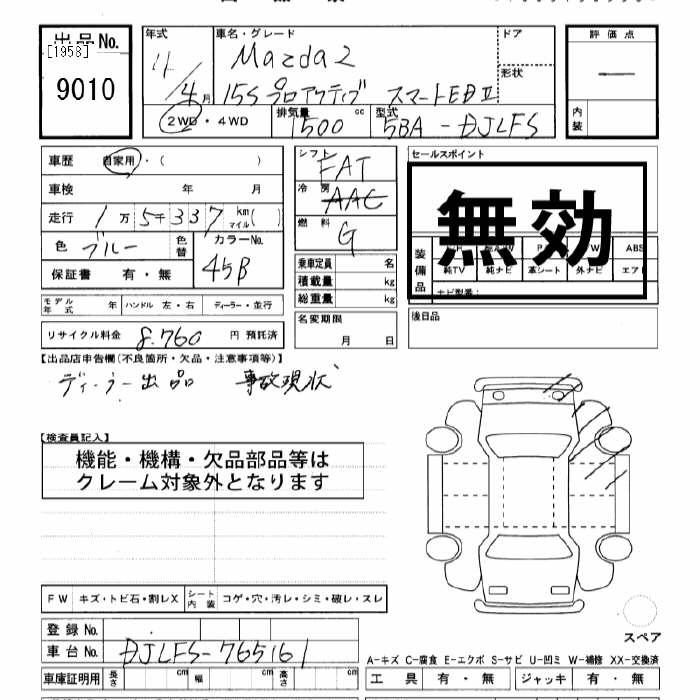 出品No. 年式 車名・グレード ドア 評価点
[1958] 9010 Mazda2 形状 ―
4月 15S プロアクティブ スマートED II 内装
2WD・4WD 排気量 1500 cc 型式 5BA-DJLFS
車歴 自家用・( ) シフト FAT セールスポイント
車検 年 月 冷房 AAC
無効
走行 1万5千337km マイル( ) 燃料 G
色 ブルー 色替 カラーNo. 45B 装備品 ABS
保証書 有・無 乗車定員 名 純TV 純ナビ 革シート 外ナビ エアB
積載量 kg ナビ型番:
モデル年式 年 ハンドル 左・右 ディーラー・並行 総重量 kg
リサイクル料金 8.760 円 預託済 名変期限 月 日 後日品
【出品店申告欄(不良箇所・欠品・注意事項等)】
ディーラー出品 事故現状
【検査員記入】
機能・機構・欠品部品等は
クレーム対象外となります
FW キズ・トビ石・割レX シート内装 コゲ・穴・汚レ・シミ・破レ・スレ
登録No.
スペア
車台No. DJLFS-765161
A-キズ C-腐食 E-エクボ S-サビ U-凹ミ W-補修 XX-交換済
車庫証明用 長さ cm 幅 cm 高さ cm 工具 有・無 ジャッキ 有・無